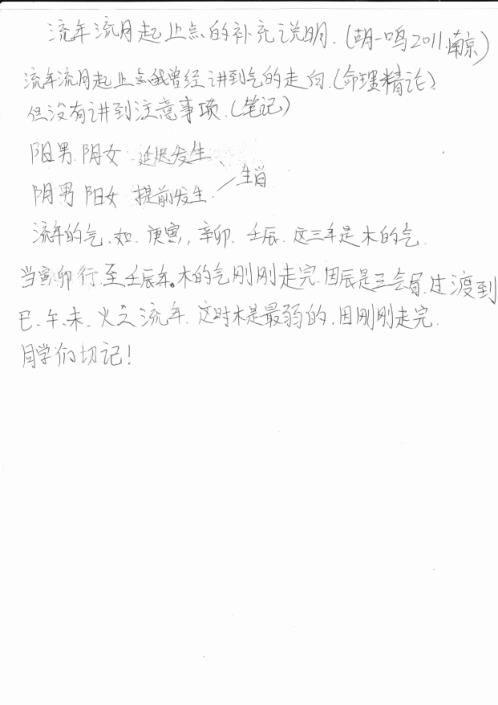 流年流月起止点的补充说明.(胡一鸣2011.南京)
流年流月起止点我曾经讲到气的走向.(命理精论)
但没有讲到注意事项.(笔记)
阳男.阴女 延迟发生、
阴男 阳女 提前发生. 生肖
流年的气.如.庚寅,辛卯.壬辰.这三年是木的气.
当寅.卯行.至壬辰年。木的气刚刚走完.因辰是三会局.过渡到
巳、午、未、火之流年.这时木是最弱的.因刚刚走完.
同学们切记!